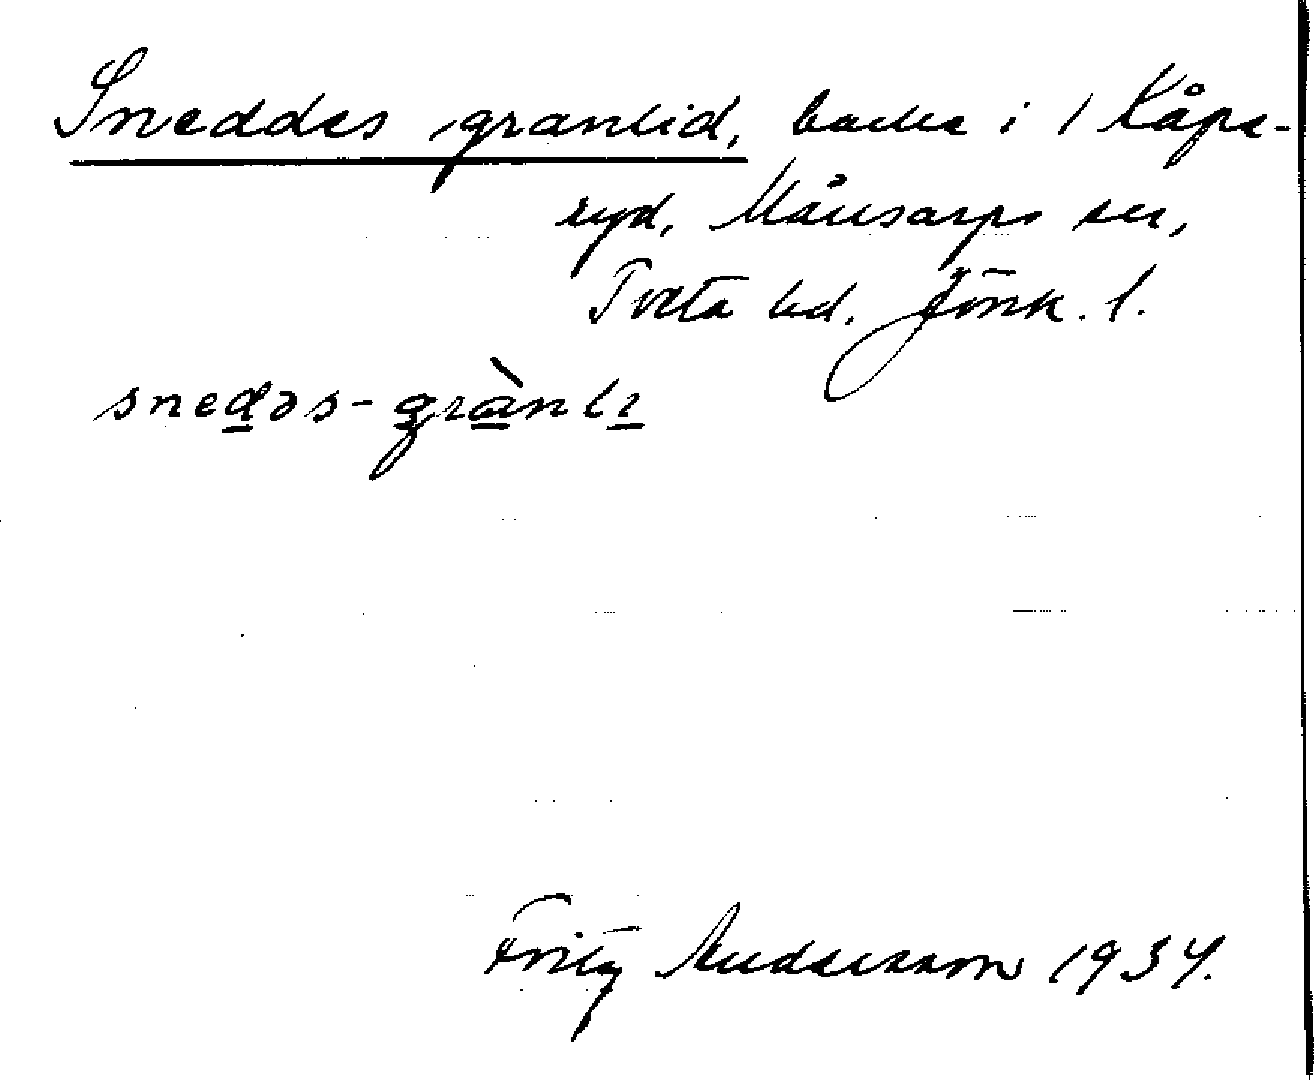 Sneddes granlid, backe i 1 Kåpe-
ryd, Månsarps sn,
Tveta hd. Jönk. l.
snedəs-grànlı
Fritz Andersson 1934.